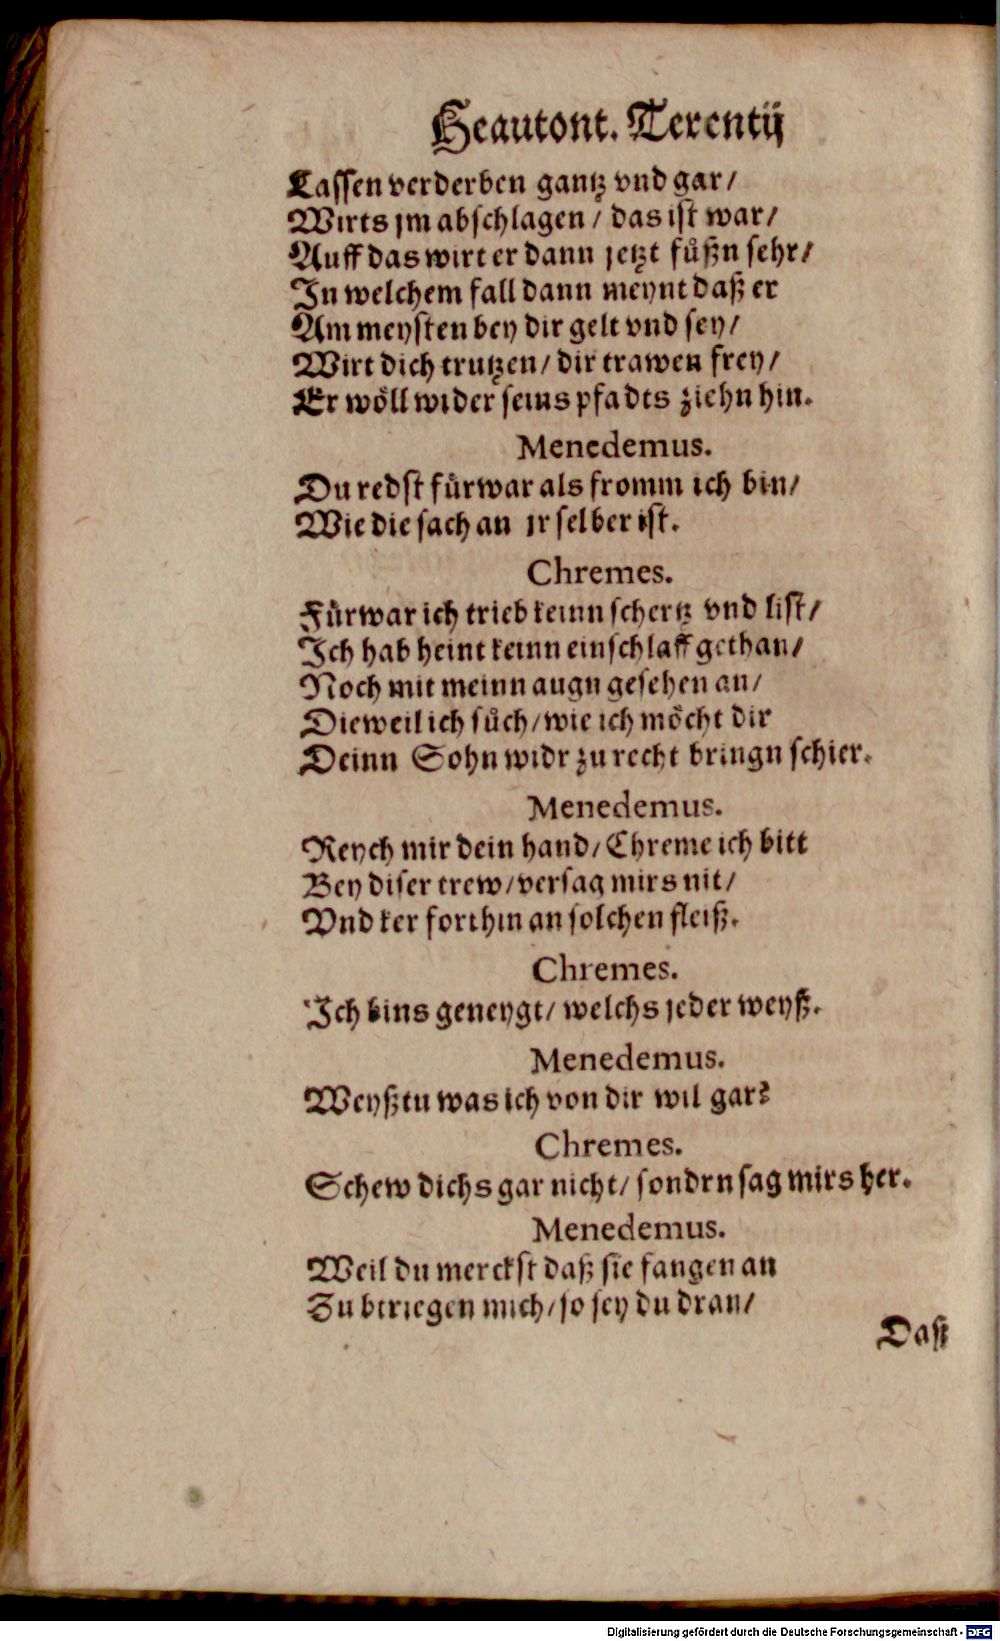 Heautont. Terentij
Lassen verderben gantz vnd gar /
Wirts jm abschlagen / das ist war /
Auff das wirt er dann jetzt fůßn sehr /
In welchem fall dann meynt daß er
Am meysten bey dir gelt vnd sey /
Wirt dich trutzen / dir trawen frey /
Er wöll wider seins pfadts ziehn hin.
Menedemus.
Du redst fürwar als fromm ich bin /
Wie die sach an jr selber ist.
Chremes.
Fürwar ich trieb keinn schertz vnd list /
Ich hab heint keinn einschlaff gethan /
Noch mit meinn augn gesehen an /
Dieweil ich sůch / wie ich möcht dir
Deinn Sohn widr zu recht bringn schier.
Menedemus.
Reych mir dein hand / Chreme ich bitt
Bey diser trew / versag mirs nit /
Vnd ker forthin an solchen fleiß.
Chremes.
Ich bins geneygt / welchs jeder weyß.
Menedemus.
Weyßtu was ich von dir wil gar?
Chremes.
Schew dichs gar nicht / sondrn sag mirs her.
Menedemus.
Weil du merckst daß sie fangen an
Zu btriegen mich / so sey du dran /
Daß
Digitalisierung gefördert durch die Deutsche Forschungsgemeinschaft - DFG